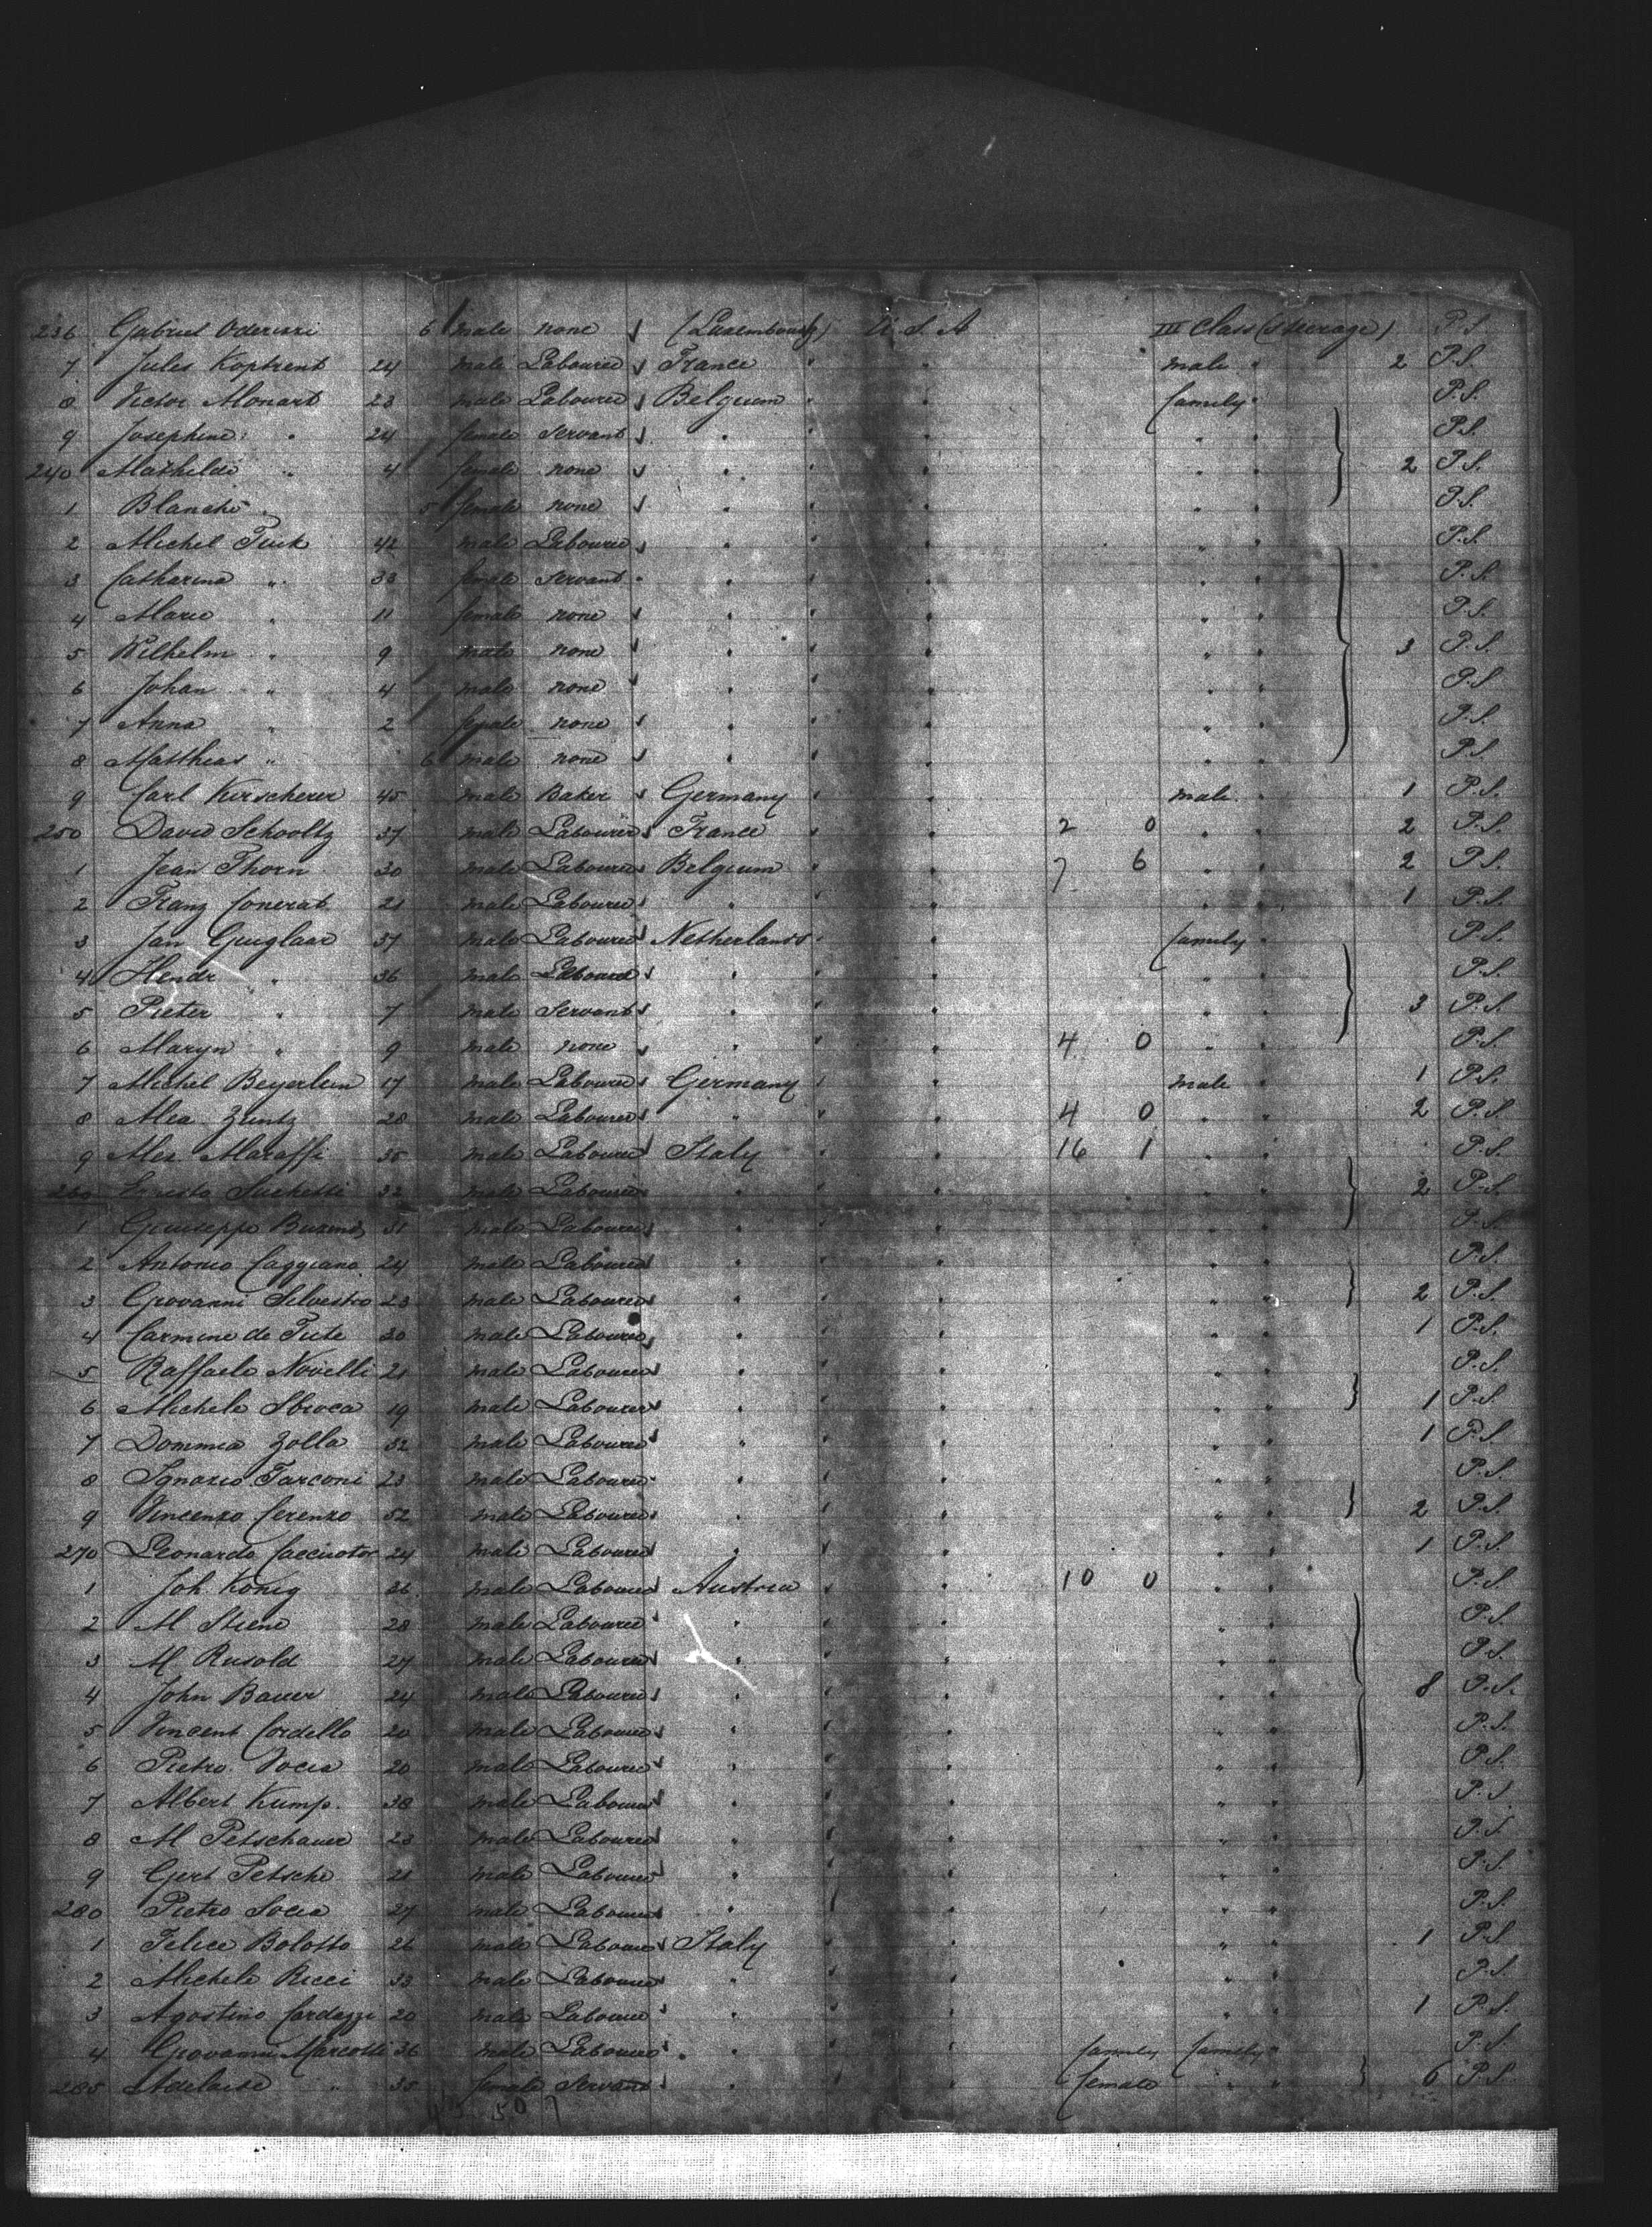 236 Gabriel Oderizzi 6 male none (Luxembourg) U. S. A III Class (Steerage) P.S.
7 Jules Koptrent 24 male Labourer France " " male " 2 P.S.
8 Victor Monart 23 male Labourer Belgium " family " P.S.
9 Josephine " 24 female Servant " " " " " P.S.
240 Mathilde " 4 female none " " " " " 2 P.S.
1 Blanche " 5 female none " " " " " P.S.
2 Michel 42 male Labourer " " " " " P.S.
3 Catharina " 33 female Servant " " " " " P.S.
4 Marie " 11 female none " " " " " P.S.
5 Wilhelm " 9 male none " " " " " 3 P.S.
6 Johan " 4 male none " " " " " P.S.
7 Anna " 2 female none " " " " " P.S.
8 Matthias " 6 male none " " " " " P.S.
9 Carl Kirscherer 45 male Baker Germany " " male " 1 P.S.
250 David Schooltz 37 male Labourer France " " 2 0 " " 2 P.S.
1 Jean Thorn 30 male Labourer Belgium " " 7 6 " " 2 P.S.
2 Franz Conerat 21 male Labourer " " " " " 1 P.S.
3 Jan Guiglaar 37 male Labourer Netherlands " family " P.S.
4 Hendr " 36 male Labourer " " " " " P.S.
5 Pieter " 7 male Servant " " " " " 3 P.S.
6 Maryn " 9 male none " " " 4 0 " " P.S.
7 Michel Beyerlein 17 male Labourer Germany " " male " 1 P.S.
8 Alea Zuntz 28 male Labourer " " " 4 0 " " 2 P.S.
9 Ales. Maraffi 35 male Labourer Italy " " 16 1 " " P.S.
260 Suchetti 32 male Labourer " " " " " 2 P.S.
1 Giuseppe 31 male Labourer " " " " " P.S.
2 Antonio Caggiano 24 male Labourer " " " " " P.S.
3 Giovanni Silvestro 23 male Labourer " " " " " 2 P.S.
4 Carmine de Tute 30 male Labourer " " " " " 1 P.S.
5 Raffaele Novelli 21 male Labourer " " " " " P.S.
6 Michele Sbroca 19 male Labourer " " " " " 1 P.S.
7 Dommea Zolla 32 male Labourer " " " " " 1 P.S.
8 Ignazio Tarconi 23 male Labourer " " " " " P.S.
9 Vincenzo Cerenzo 52 male Labourer " " " " " 2 P.S.
270 Leonardo Cacciator 24 male Labourer " " " " " 1 P.S.
1 Joh. König 26 male Labourer Austria " " 10 0 " " P.S.
2 M Stiene 28 male Labourer " " " " " P.S.
3 M Rusold 27 male Labourer " " " " " P.S.
4 John Bauer 24 male Labourer " " " " " 8 P.S.
5 Vincent Cordello 20 male Labourer " " " " " P.S.
6 Pietro Vocca 20 male Labourer " " " " " P.S.
7 Albert Kump. 38 male Labourer " " " " " P.S.
8 M Petschauer 23 male Labourer " " " " " P.S.
9 Gert Petsche 21 male Labourer " " " " " P.S.
280 Pietro Socia 27 male Labourer " " " " " P.S.
1 Felice Bolotto 26 male Labourer Italy " " " " 1 P.S.
2 Michele Ricci 33 male Labourer " " " " " P.S.
3 Agostino Cardazzi 20 male Labourer " " " " " 1 P.S.
4 Giovanni Marcotti 36 male Labourer " " " family family " P.S.
285 Adelaide " 35 female Servant " " " female " " 6 P.S.